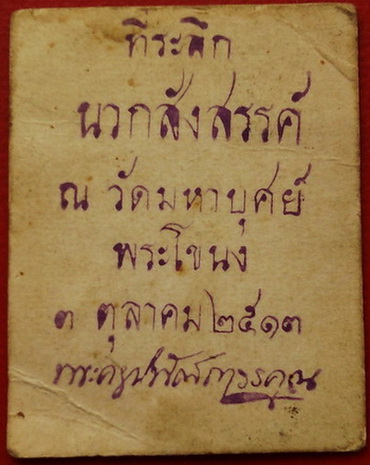 ที่ระลึก
นวกสังสรรค์
ณ วัดมหาบุศย์
พระโขนง
๓ ตุลาคม ๒๕๑๓
พระครู